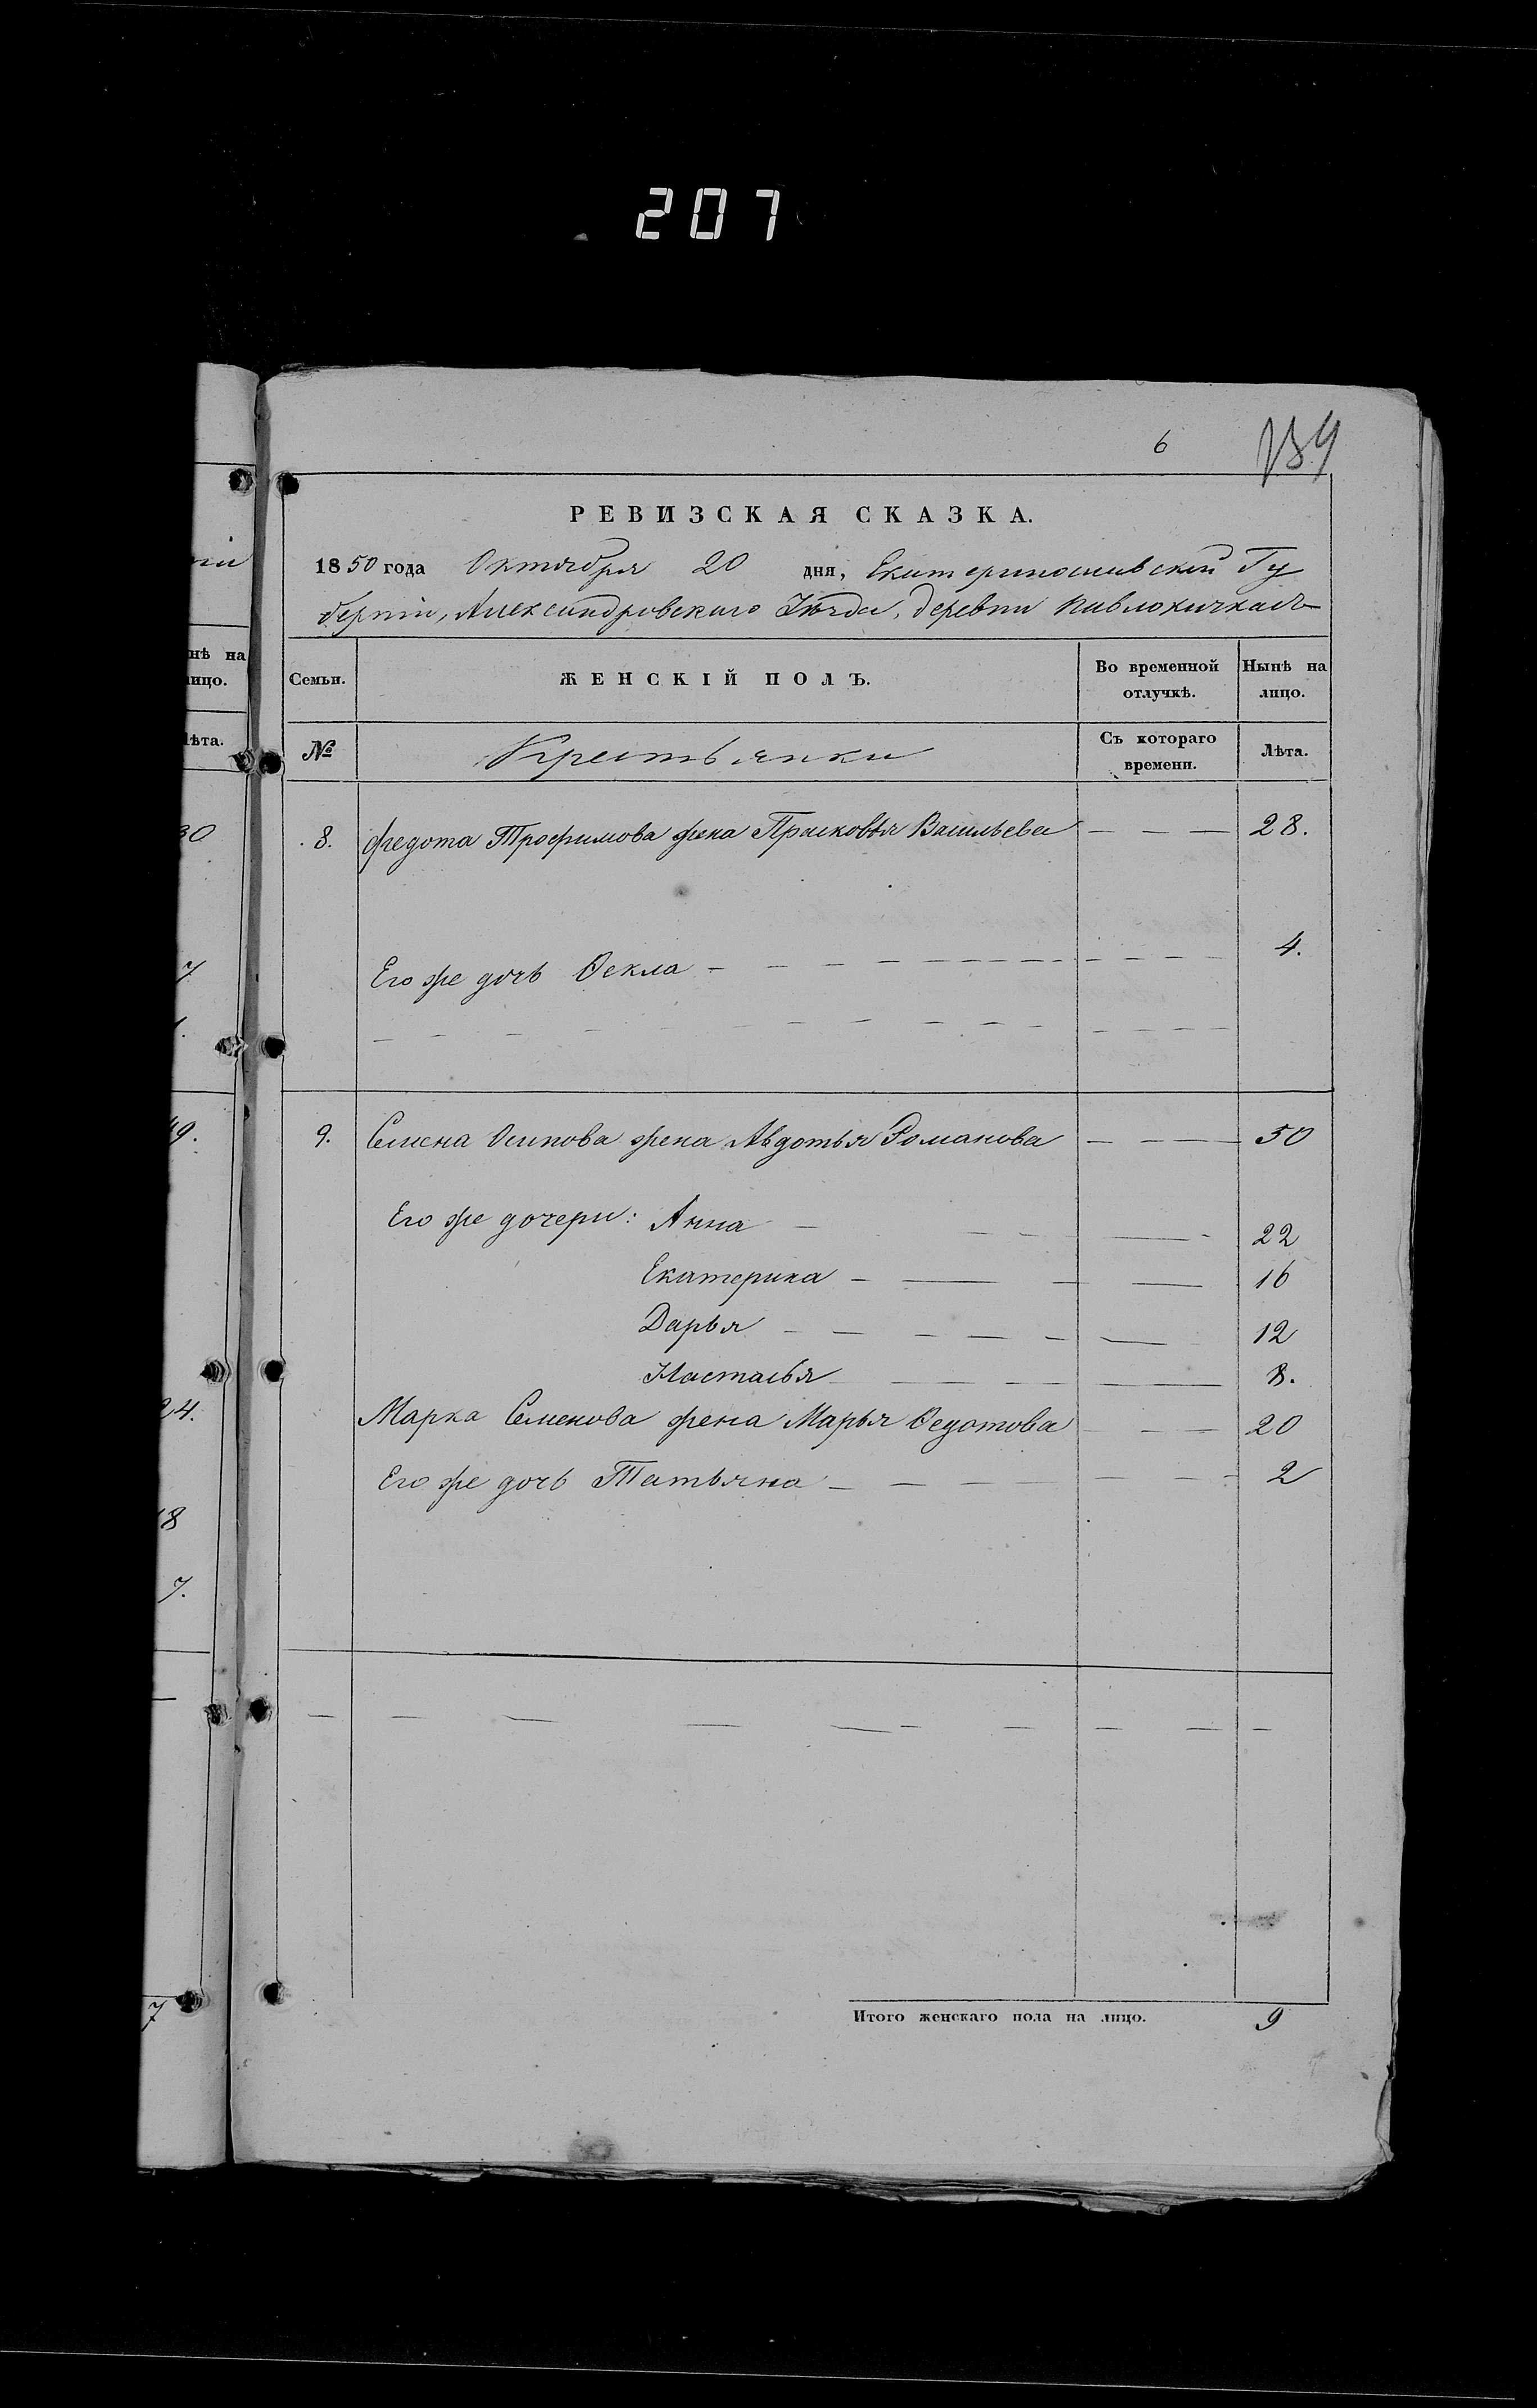 207
6 139
РЕВИЗСКАЯ СКАЗКА.
1850 года Октября 20 дня, Екатеринославской Гу
берніи, Александровскаго Уѣзда, деревни Павлокичкасъ
нѣ на
лицо.
Семьи. ЖЕНСКІЙ ПОЛЪ. Во временной отлучкѣ. Нынѣ на лицо.
лѣта.
№ Крестьянки Съ котораго времени. Лѣта.
30
8. Федота Трофимова жена Прасковья Васильева — — — 28.
7
Его же дочь Ѳекла — — — 4.
19.
9. Семена Осипова жена Авдотья Романова — — — 50
Его же дочери: Анна — — — 22
Екатерина — — — 16
Дарья — — — 12
Настасья — — — 8.
24.
Марка Семенова жена Марья Ѳедотова — — — 20
Его же дочь Татьяна — — — 2
18
7.
7
Итого женскаго пола на лицо. 9